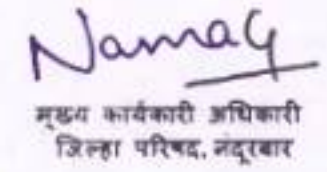 Namay
मुख्य कार्यकारी अधिकारी
जिल्हा परिषद, नंदूरबार